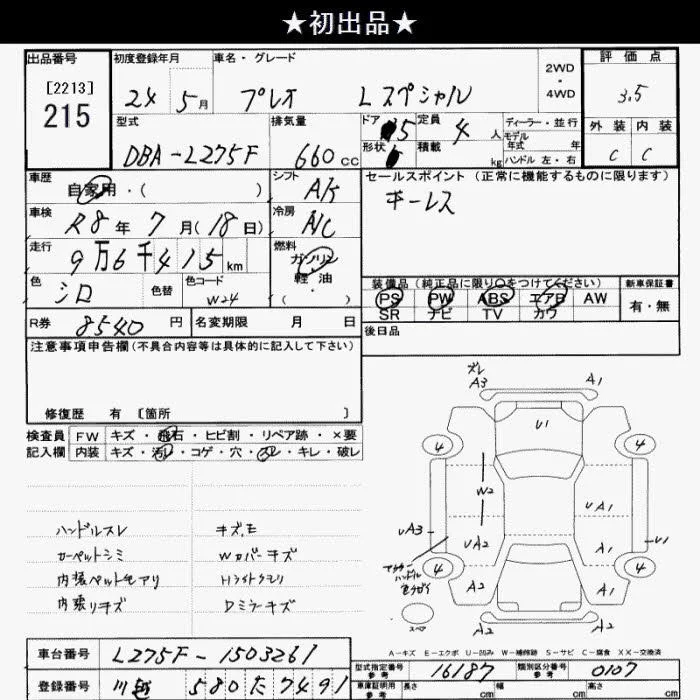 ★初出品★
出品番号 初度登録年月 車名・グレード 2WD・4WD 評価点
[2213]
215
24 5月 プレオ Lスペシャル 3.5
型式 排気量 ドア 5 定員 4人 ディーラー・並行 外装 内装
モデル年式 年
DBA-L275F 660cc 形状 積載 kg ハンドル 左・右 C C
車歴 自家用・( ) シフト A/ セールスポイント (正常に機能するものに限ります)
キーレス
車検 R8年 7月(18日) 冷房 A/C
走行 9万6千415km 燃料 ガソリン 軽油 ( )
色 シロ 色替 色コード W24
装備品(純正品に限り○をつけてください) 新車保証書
PS PW ABS エアB AW 有・無
SR ナビ TV カワ
R券 8540円 名変期限 月 日 後日品
注意事項申告欄(不具合内容等は具体的に記入して下さい)
修復歴 有 [箇所 ]
検査員記入欄 FW キズ・飛石・ヒビ割・リペア跡・×要
内装 キズ・汚レ・コゲ・穴・スレ・キレ・破レ
ハンドルスレ キズ、E
カーペットシミ Wカバーキズ
内張ペット毛アリ Hライトクモリ
内張りキズ Dミラーキズ
ズレ
A3 A1
U1
4 4
W2 UA1
UA3 UA2 A1 U1
4 4
A2 A1
スペア
A2 A1
A-キズ E-エクボ U-凹み W-補修跡 S-サビ C-腐食 XX-交換済
車台番号 L275F-1503261
型式指定番号 参考 16187 類別区分番号 参考 0107
登録番号 川越 580 た 7491
車庫証明用 参考 長さ cm 幅 cm 高さ cm